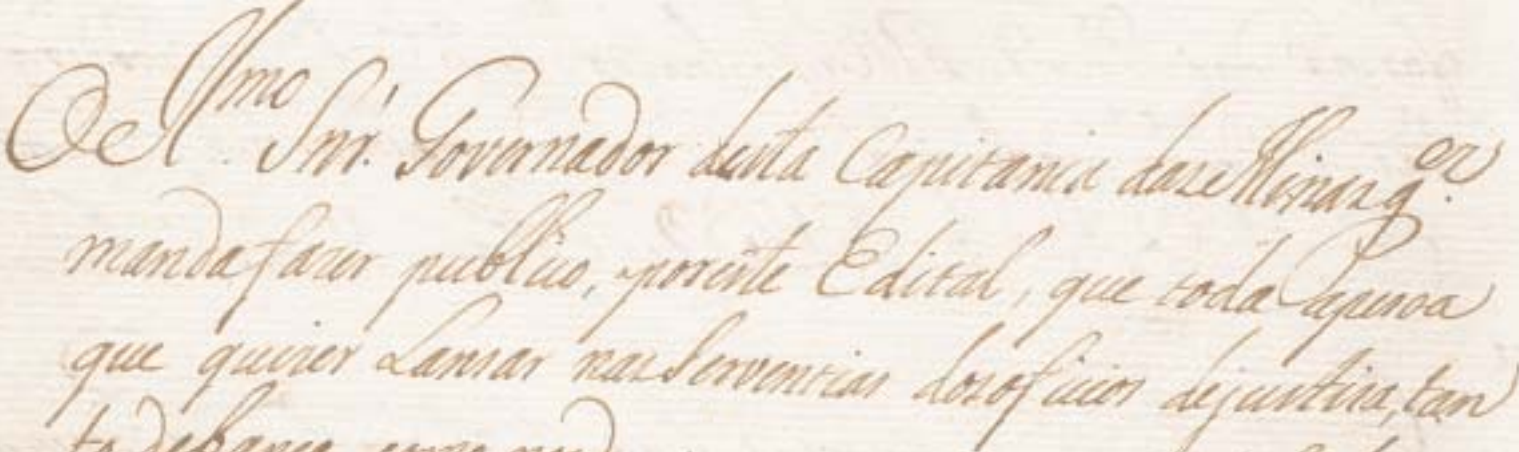 O Illmo Snr. Governador desta Capitania das Minas g.es
manda fazer publico, por este Edital, que toda apesoa
que quizer Lansar nas Serventias dos oficios de justisa, tan
to de